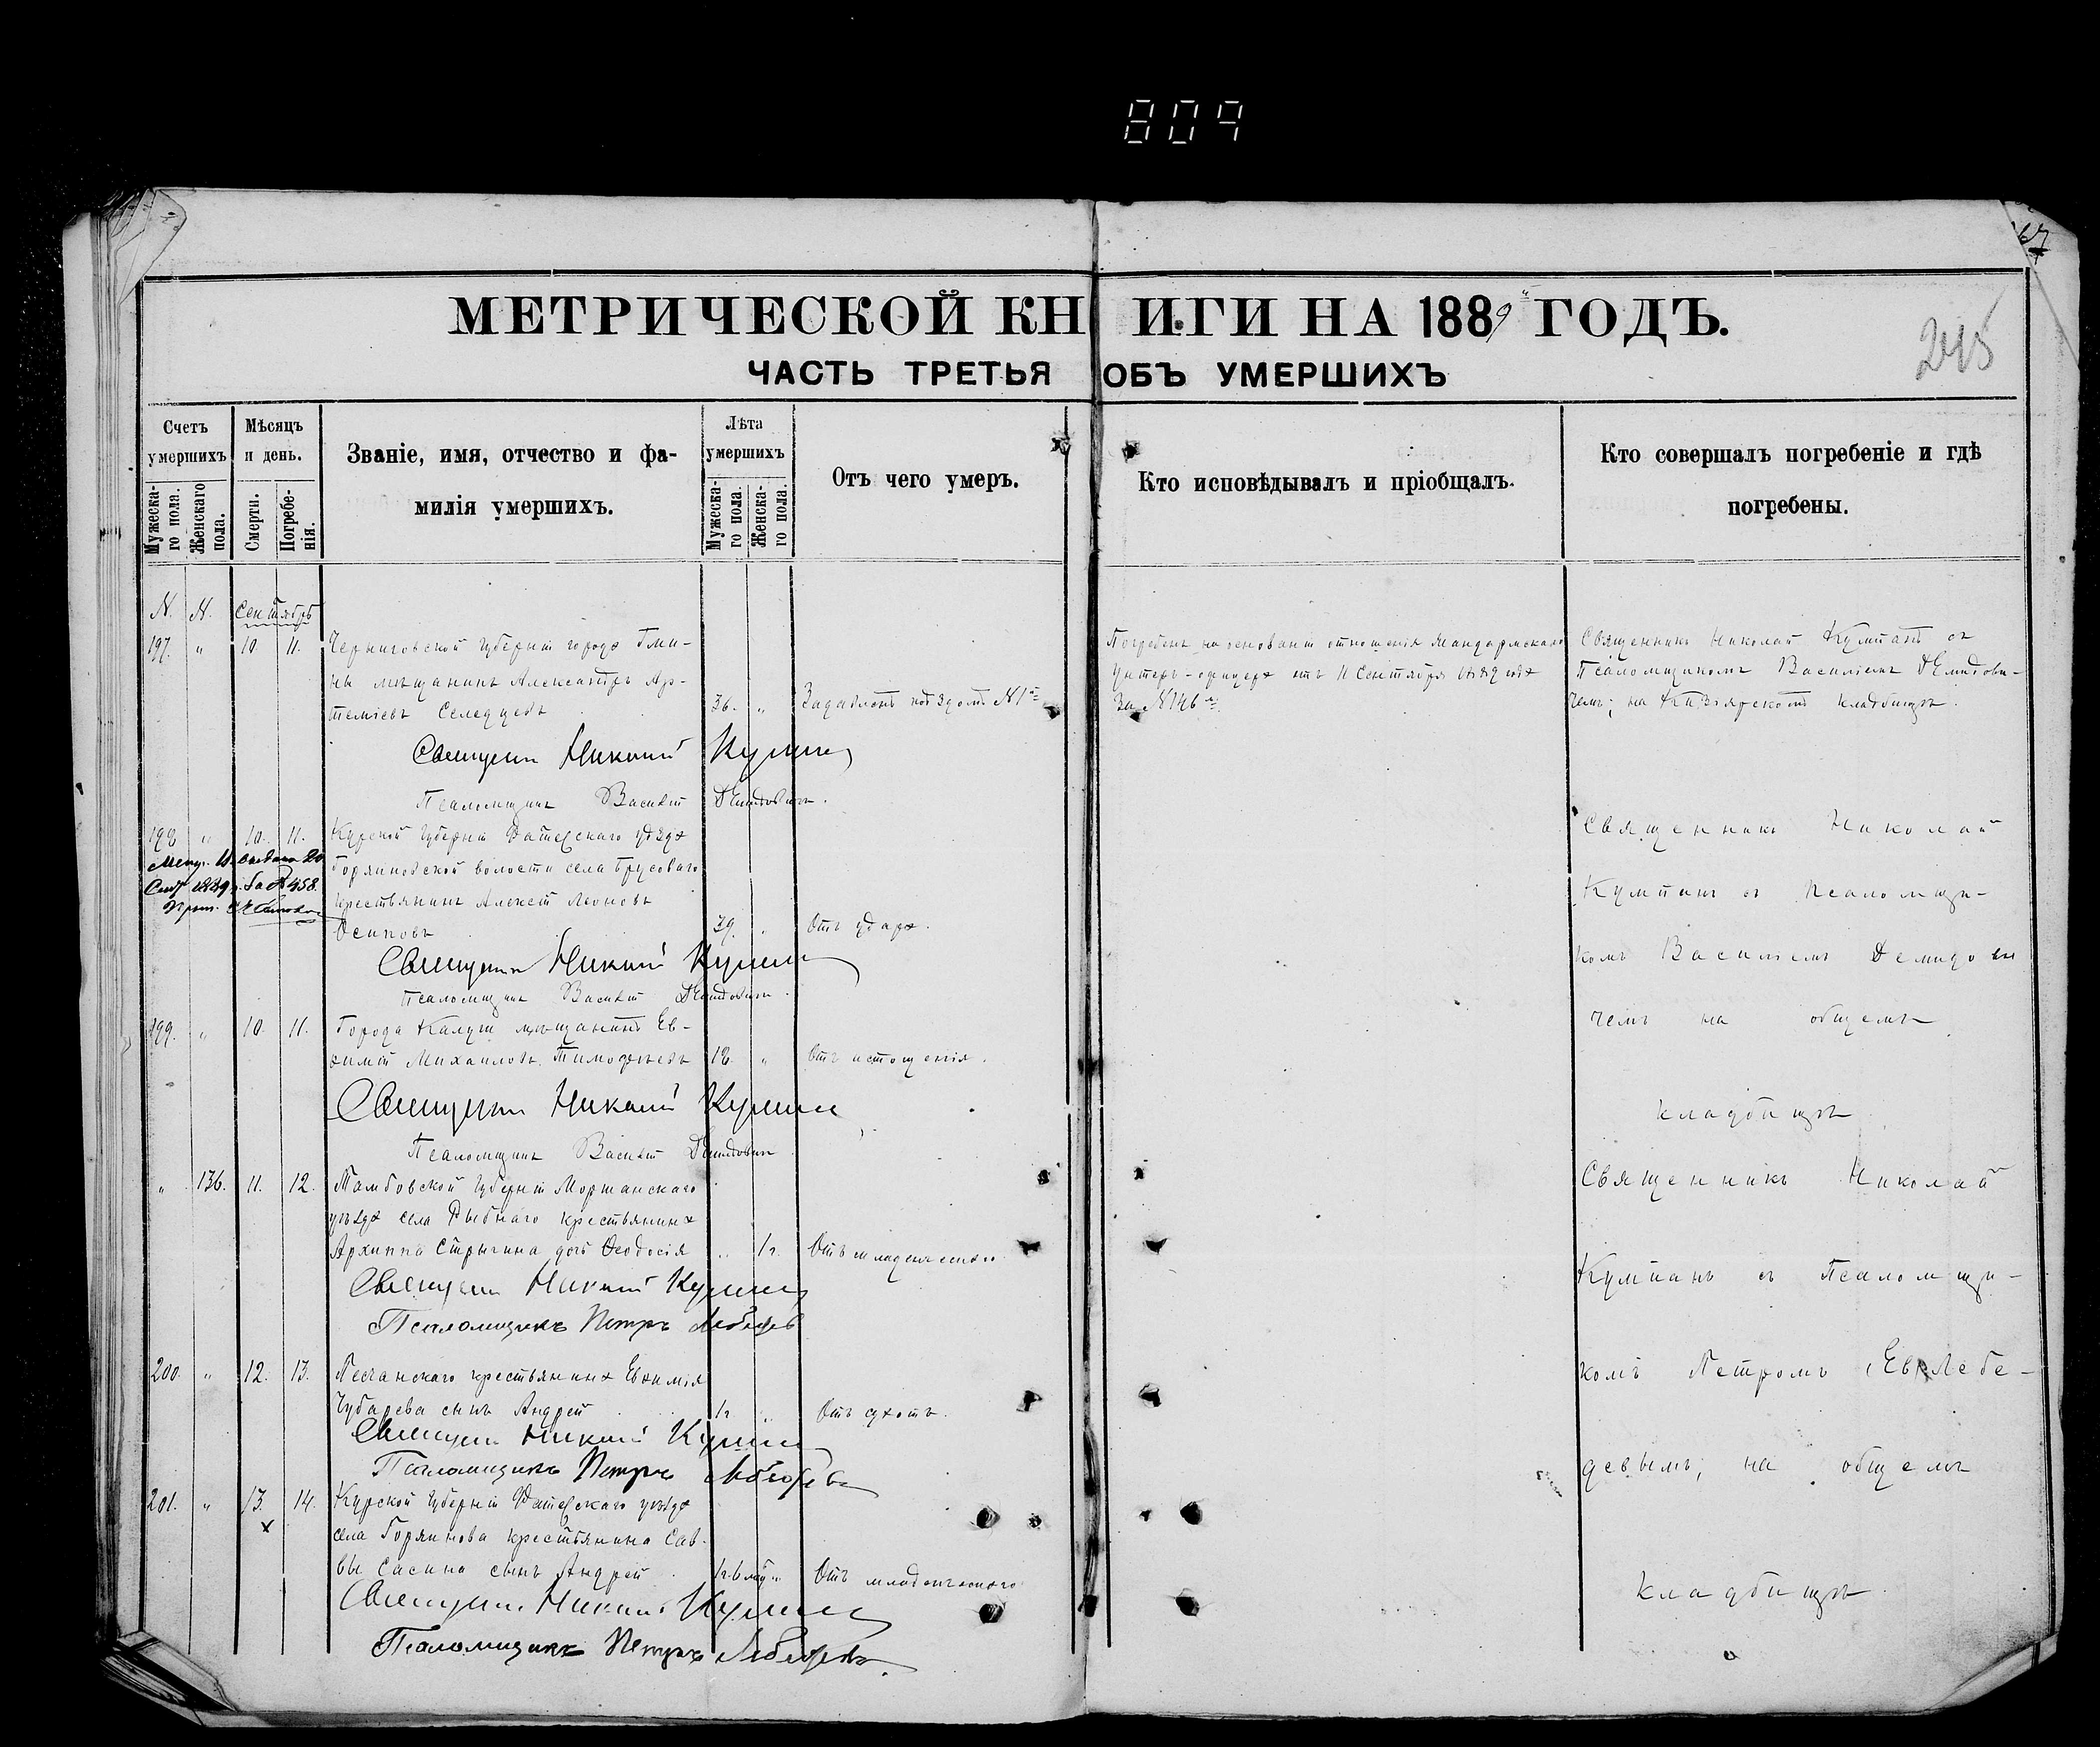 809
67
МЕТРИЧЕСКОЙ КНИГИ НА 1889й ГОДЪ.
245
ЧАСТЬ ТРЕТЬЯ ОБЪ УМЕРШИХЪ
Счетъ умершихъ
Мужеска-го пола.
Женскаго пола.
Мѣсяцъ и день.
Смерти.
Погребе-нія.
Званіе, имя, отчество и фа-
милія умершихъ.
Лѣта умершихъ
Мужеска-го пола.
Женска-го пола.
Отъ чего умеръ.
Кто исповѣдывалъ и пріобщалъ.
Кто совершалъ погребеніе и гдѣ
погребены.
N. N. Сентябрь
197. " 10. 11. Черниговской Губерніи города
на мѣщанинъ Александръ Ар-
теміевъ Селедцевъ 36. " Задавленъ поѣздомъ N1й
Погребенъ на основаніи отношенія Жандармскаго
Унтеръ-офицера отъ 11 Сентября 1889 года
За N146
Священникъ Николай Кумпанъ съ
Псаломщикомъ Василіемъ Демидови-
чемъ; на кладбищѣ.
Священникъ Николай Кумпанъ
Псаломщикъ Василій Демидовичъ.
198 " 10. 11. Курской Губерніи Фатежскаго уѣзда
Горяиновской волости села Брусоваго
крестьянинъ Алексѣй Леоновъ
Осиповъ 39. " Отъ удара.
1889 г. За № 458.
Священникъ Николай Кумпанъ
Псаломщикъ Василій Демидовичъ.
199. " 10. 11. Города Калуги мѣщанинъ Ев-
ѳимій Михаиловъ Тимоѳеевъ 18. " Отъ истощенія.
Священникъ Николай Кумпанъ
Псаломщикъ Василій Демидовичъ
Священникъ Николай
Кумпанъ съ Псаломщи-
комъ Василіемъ Демидови
чемъ на общемъ
кладбищѣ
" 136. 11. 12. Тамбовской Губерніи Моршанскаго
уѣзда села Рыбнаго крестьянина
Архиппа Стрыгина дочь Ѳеодосія " 1г. Отъ младенческаго
Священникъ Николай Кумпанъ
Псаломщикъ Петръ Лебедевъ
200. " 12. 13. Песчанскаго крестьянина Евѳимія
Чубарева сынъ Андрей 1г " Отъ сухотъ.
Священникъ Николай Кумпанъ
Псаломщикъ Петръ Лебедевъ
201. " 13. 14. Курской Губерніи Фатежскаго уѣзда
х
села Горяинова крестьянина Сав-
вы Сасина сынъ Андрей 1г. 6 " Отъ младенческаго
Священникъ Николай Кумпанъ
Псаломщикъ Петръ Лебедевъ.
Священникъ Николай
Кумпанъ съ Псаломщи-
комъ Петромъ Лебе-
девымъ; на общемъ
кладбищѣ